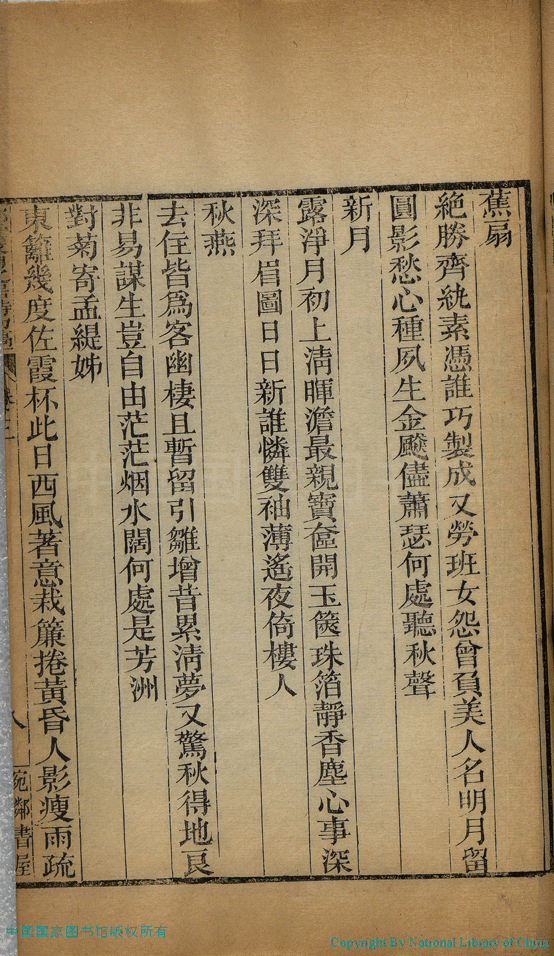 蕉扇
絶勝齊紈素憑誰巧製成又勞班女怨曾負美人名明月留
圓影愁心種夙生金飈儘蕭瑟何處聽秋聲
新月
露淨月初上淸暉澹最親寶奩開玉篋珠箔靜香塵心事深
深拜眉圖日日新誰憐雙袖薄遙夜倚樓人
秋燕
去住皆爲客幽棲且暫留引雛增昔累淸夢又驚秋得地良
非易謀生豈自由茫茫烟水闊何處是芳洲
對菊寄孟緹姊
東籬幾度佐霞杯此日西風著意栽簾捲黃昏人影瘦雨疏
八
宛鄰書屋
中国国家图书馆版权所有
Copyright By National Library of China